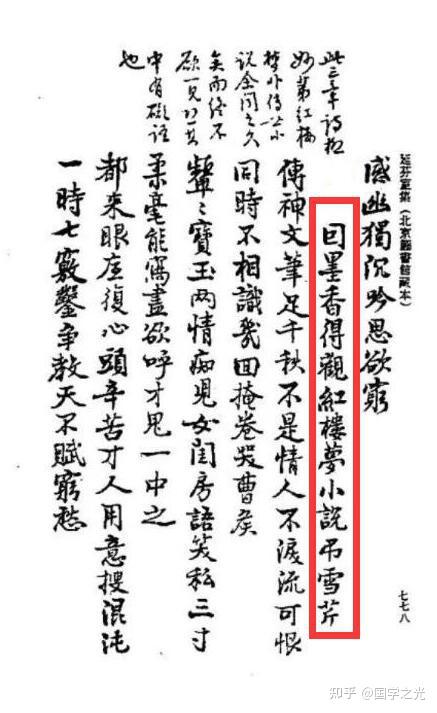 延芬室集(北京圖書館藏本)
七七八
此三章詩極
妙第紅樓
夢非傳世小
說余聞之久
矣而終不
欲一見恐其
中有礙語
也
感幽獨沉吟思欲窮
囙墨香得觀紅樓夢小說吊雪芹
傳神文筆足千秋不是情人不淚流可恨
同時不相識幾囬掩卷哭曹侯
顰〻寶玉兩情痴兒女閨房語笑私三寸
柔毫能寫盡欲呼才鬼一中之
都來眼底復心頭辛苦才人用意搜混沌
一時七竅鑿爭教天不賦窮愁
知乎 @国学之光